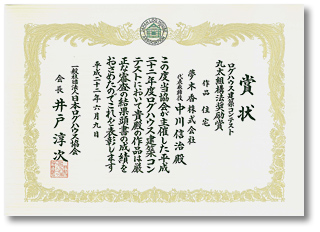 賞状
ログハウス建築コンテスト
丸太組構法奨励賞
作品 住宅
夢木香株式会社
代表取締役 中川信治殿
この度当協会が主催した平成
二十一年度ログハウス建築コン
テストにおいて貴殿の作品は厳
正な審査の結果頭書の成績を
おさめたのでこれを表彰します
平成二十二年六月九日
一般社団法人日本ログハウス協会
会長 井戸淳次